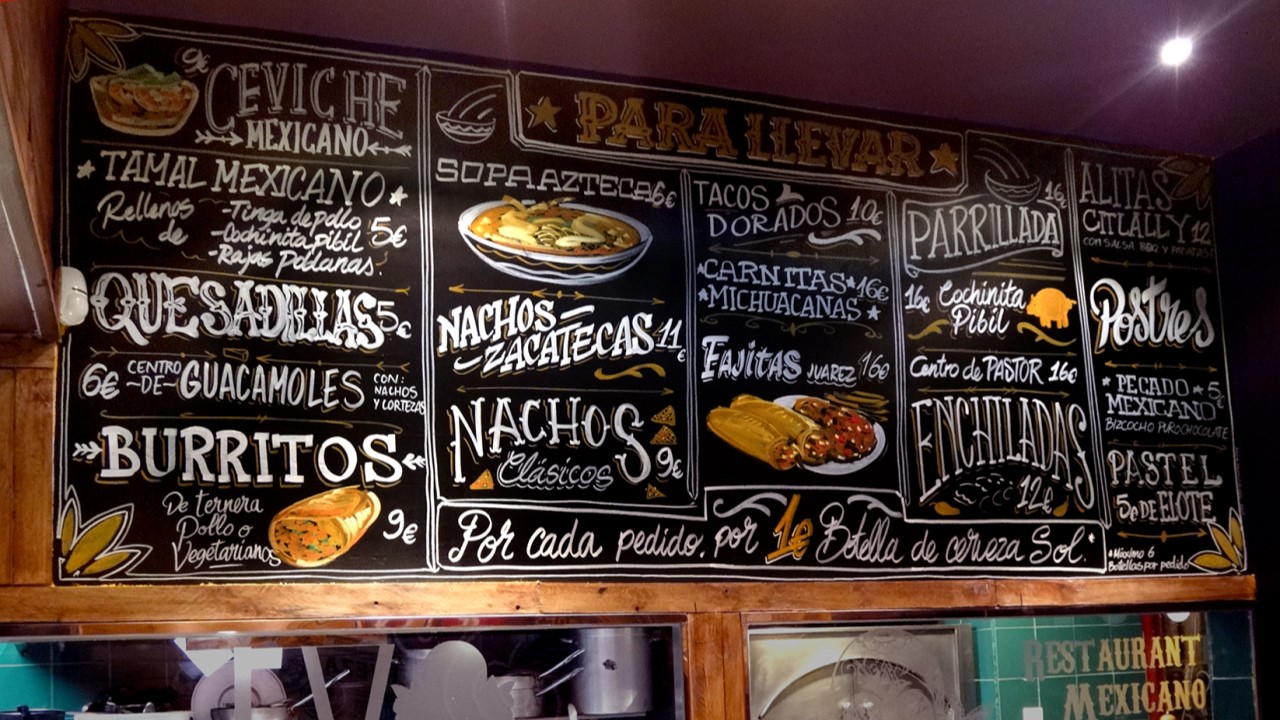 9€
CEVICHE
MEXICANO
TAMAL MEXICANO
Rellenos de
-Tinga de pollo
-Cochinita pibil
-Rajas Poblanas.
5€
QUESADILLAS 5€
6€ CENTRO -DE- GUACAMOLES
CON: NACHOS Y CORTEZAS
BURRITOS
De ternera
Pollo o
Vegetarianos
9€
PARA LLEVAR
SOPA AZTECA 6€
NACHOS
ZACATECAS 11€
NACHOS
Clásicos 9€
TACOS
DORADOS 10€
CARNITAS 16€
MICHUACANAS
FAJITAS JUAREZ 16€
16€
PARRILLADA
16€ Cochinita
Pibil
Centro de PASTOR 16€
ENCHILADAS
12€
ALITAS
CITLALLY 12
CON SALSA BBQ Y PATATAS
Postres
PECADO 5€
MEXICANO
BIZCOCHO PURO CHOCOLATE
PASTEL
5€ DE ELOTE
Por cada pedido, por 1€ Botella de cerveza Sol.*
*Máximo 6
Botellas por pedido
RESTAURANT
MEXICANO